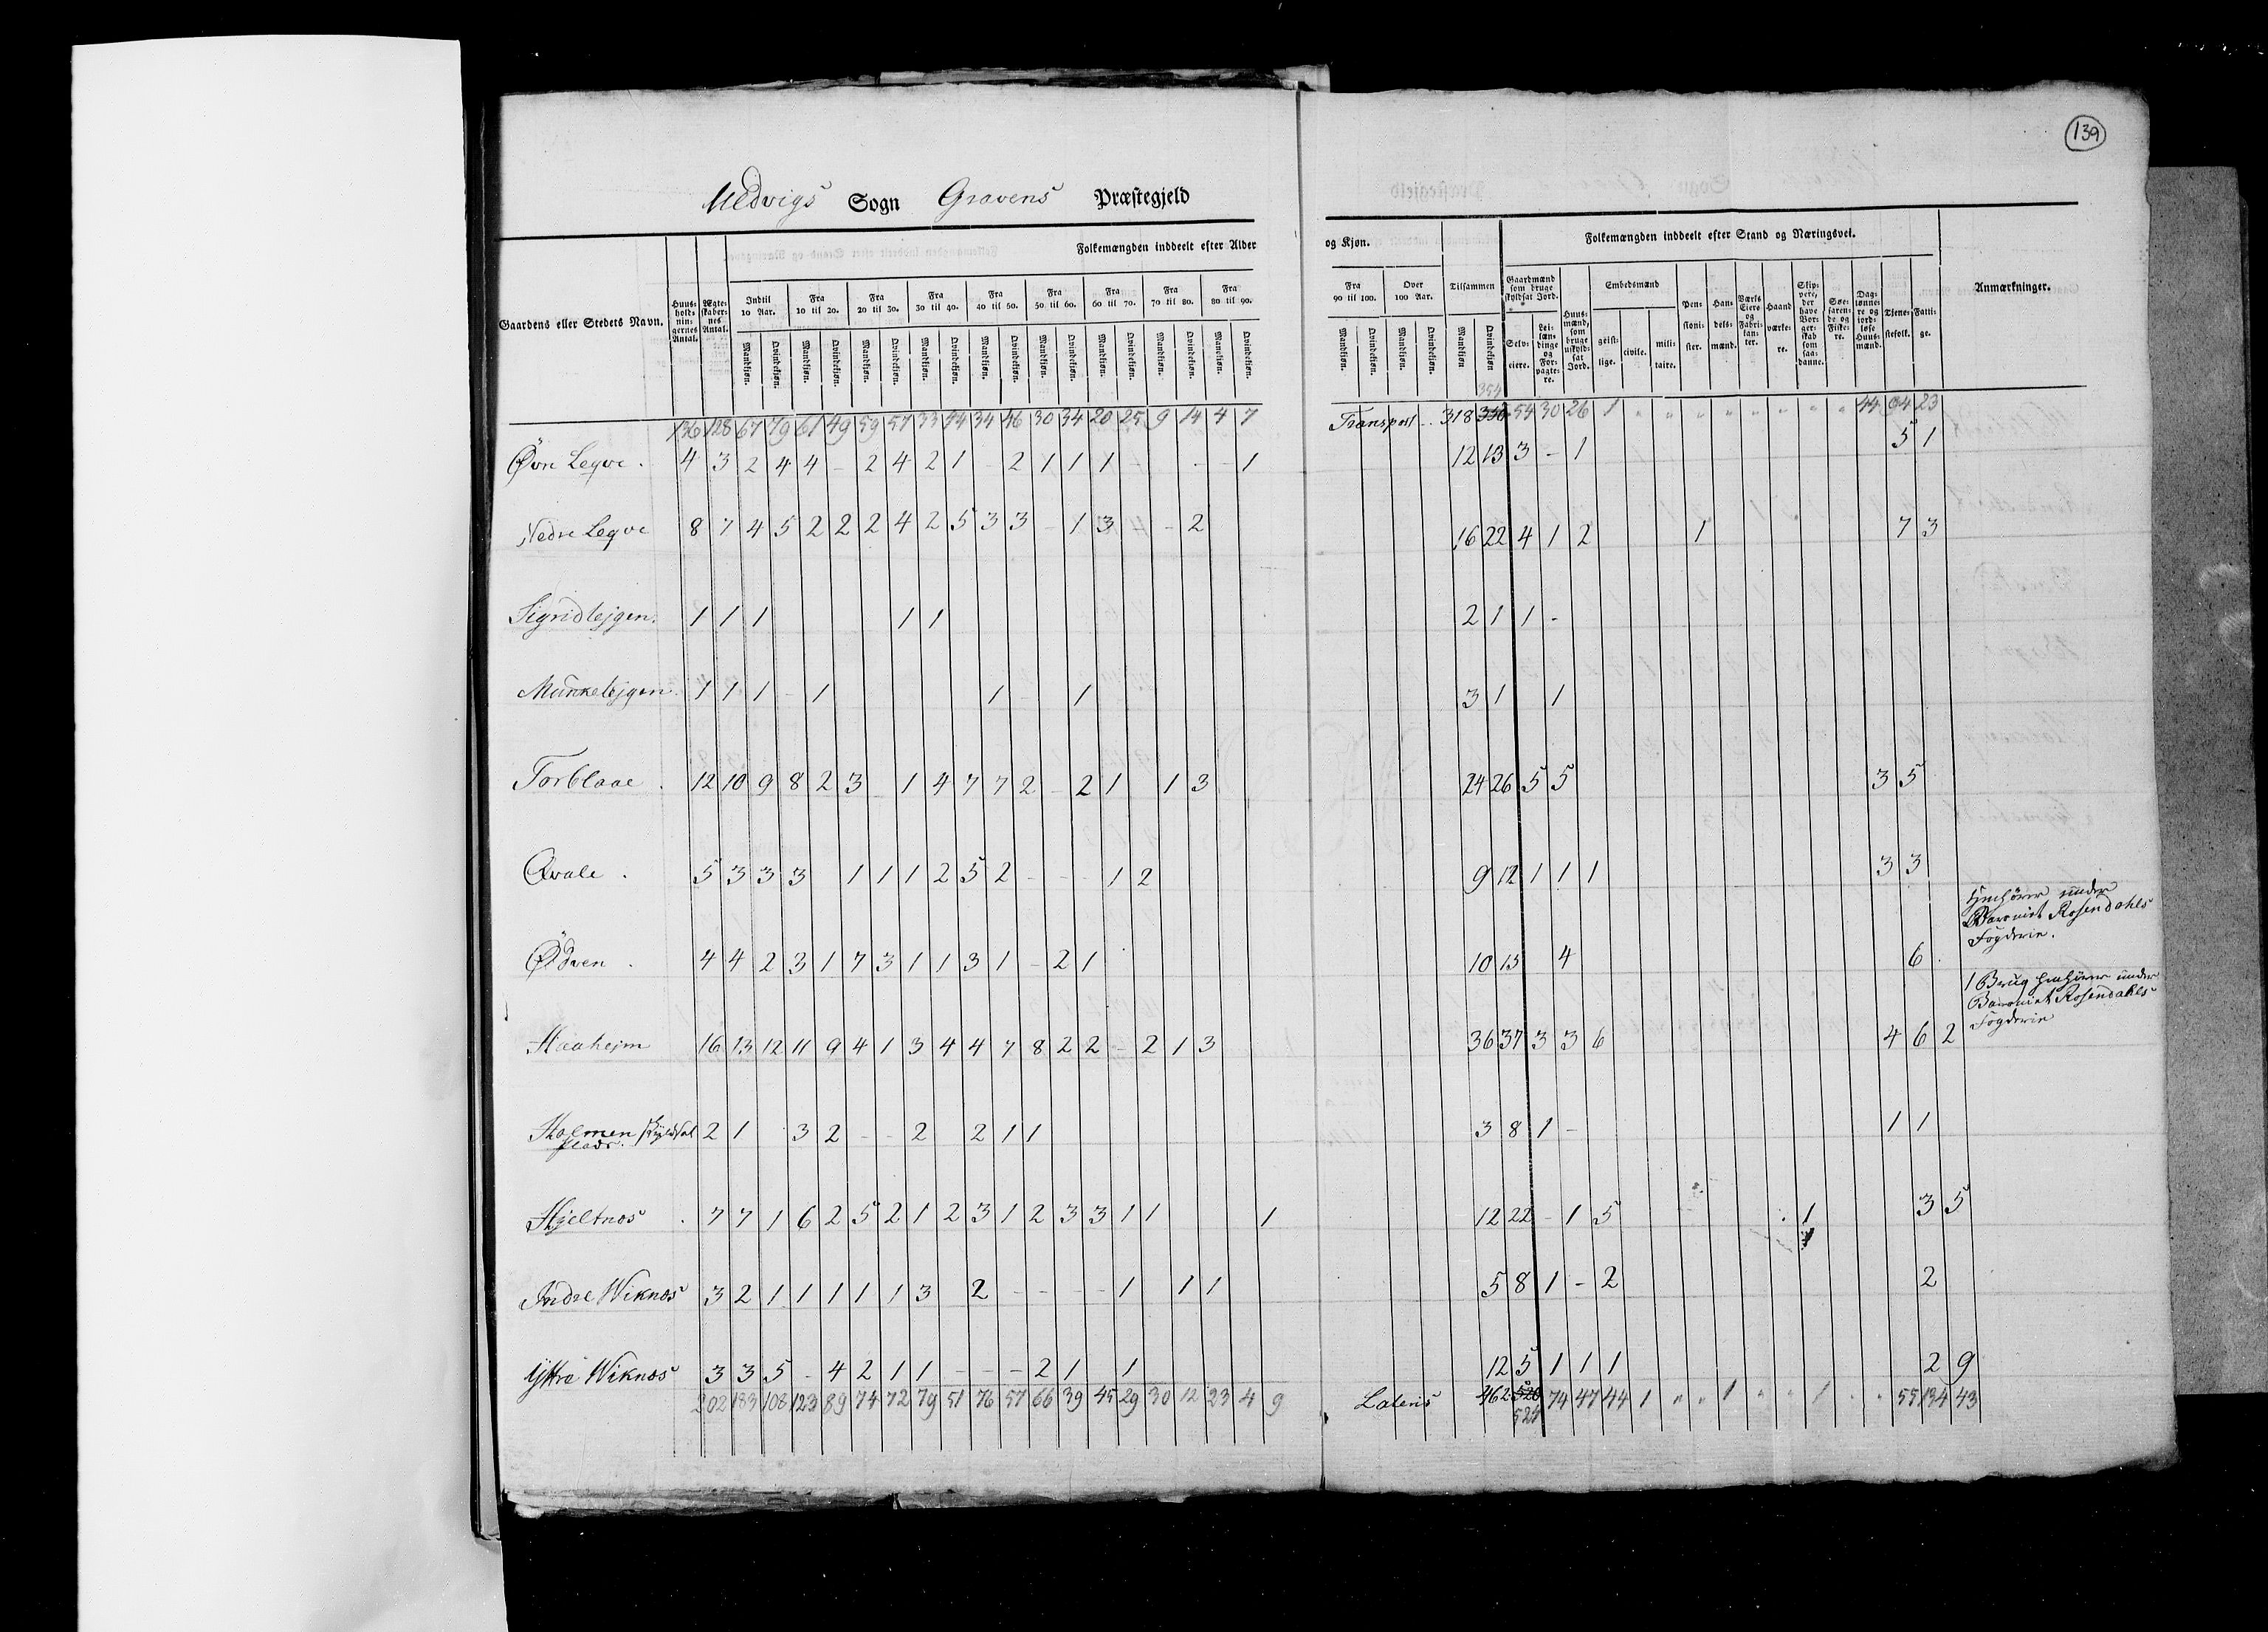 139
Ulvigs Sogn Gravens Præstegjeld
Folkemængden inddeelt efter Alder og Kjøn.
Folkemængden inddeelt efter Stand og Næringsvei.
Gaardens eller Stedets Navn.
Huus-
hold-
nin-
gernes
Antal.
Ægte-
skaber-
nes
Antal.
Indtil
10 Aar.
Fra
10 til 20.
Fra
20 til 30.
Fra
30 til 40.
Fra
40 til 50.
Fra
50 til 60.
Fra
60 til 70.
Fra
70 til 80.
Fra
80 til 90.
Fra
90 til 100.
Over
100 Aar.
Tilsammen
Mandkjøn. Qvindekjøn. Mandkjøn. Qvindekjøn. Mandkjøn. Qvindekjøn. Mandkjøn. Qvindekjøn. Mandkjøn. Qvindekjøn. Mandkjøn. Qvindekjøn. Mandkjøn. Qvindekjøn. Mandkjøn. Qvindekjøn. Mandkjøn. Qvindekjøn.
Mandkjøn. Qvindekjøn. Mandkjøn. Qvindekjøn. Mandkjøn Qvindekjøn
Gaardmænd
som bruge
skyldsat Jord.
Selv-
eiere.
Lei-
læn-
dinge
og
For-
pagte-
re.
Huus-
mænd,
som
bruge
uskyld-
sat
Jord.
Embedsmænd
geist-
lige.
civile.
mili-
taire.
Pen-
sioni-
ster.
Han-
dels-
mænd.
Værks
Eiere
og
Fabri-
kan-
ter.
Haand
værke-
re.
Skip-
pere,
der
have
Bor-
ger-
skab
som
saa-
danne.
Søe-
faren-
de og
Fiske-
re.
Dag-
lønne-
re og
jord-
løse
Huus-
mænd.
Tjene-
stefolk.
Fatti-
ge.
Anmærkninger.
354
136 128 67 79 61 49 59 57 33 44 34 46 30 34 20 25 9 14 4 7 Transport 318 350 54 30 26 1 " " " " " " " " 44 94 23
Øvre Leqve . 4 3 2 4 4 - 2 4 2 1 - 2 1 1 1 - - - 1 12 13 3 - 1 5 1
Nedre Leqve 8 7 4 5 2 2 2 4 2 5 3 3 - 1 3 - 2 16 22 4 1 2 1 7 3
Sigridlejgen. 1 1 1 1 1 2 1 1 -
Munkelejgen. 1 1 1 - 1 1 - 1 3 1 1
Torblaae . 12 10 9 8 2 3 - 1 4 7 7 2 - 2 1 1 3 24 26 5 5 3 5
Qvale . 5 3 3 3 1 1 1 2 5 2 - - - 1 2 9 12 1 1 1 3 3
Henhörer under
Baroniet Rosendahls
Fogderie.
Ødven . 4 4 2 3 1 7 3 1 1 3 1 - 2 1 10 15 4 6
1 Brug henhörer under
Baroniet Rosendahls
Fogderie
Haahejm 16 13 12 11 9 4 1 3 4 4 7 8 2 2 - 2 1 3 36 37 3 3 6 4 6 2
Holmen skyldsat 2 1 3 2 - - 2 2 1 1 3 8 1 - 1 1
Plads.
Hjeltnos . 7 7 1 6 2 5 2 1 2 3 1 2 3 3 1 1 1 12 22 - 1 5 1 3 5
Indre Wiknos 3 2 1 1 1 1 1 3 2 - - - - 1 1 1 5 8 1 - 2 2
Yttre Wiknos 3 3 5 - 4 2 1 1 - - - 2 1 1 12 5 1 1 1 2 9
202 183 108 123 89 74 72 79 51 76 57 66 39 45 29 30 12 23 4 9 Lateris 462 520 74 47 44 1 " " 1 " " 1 " " 55 134 43
524